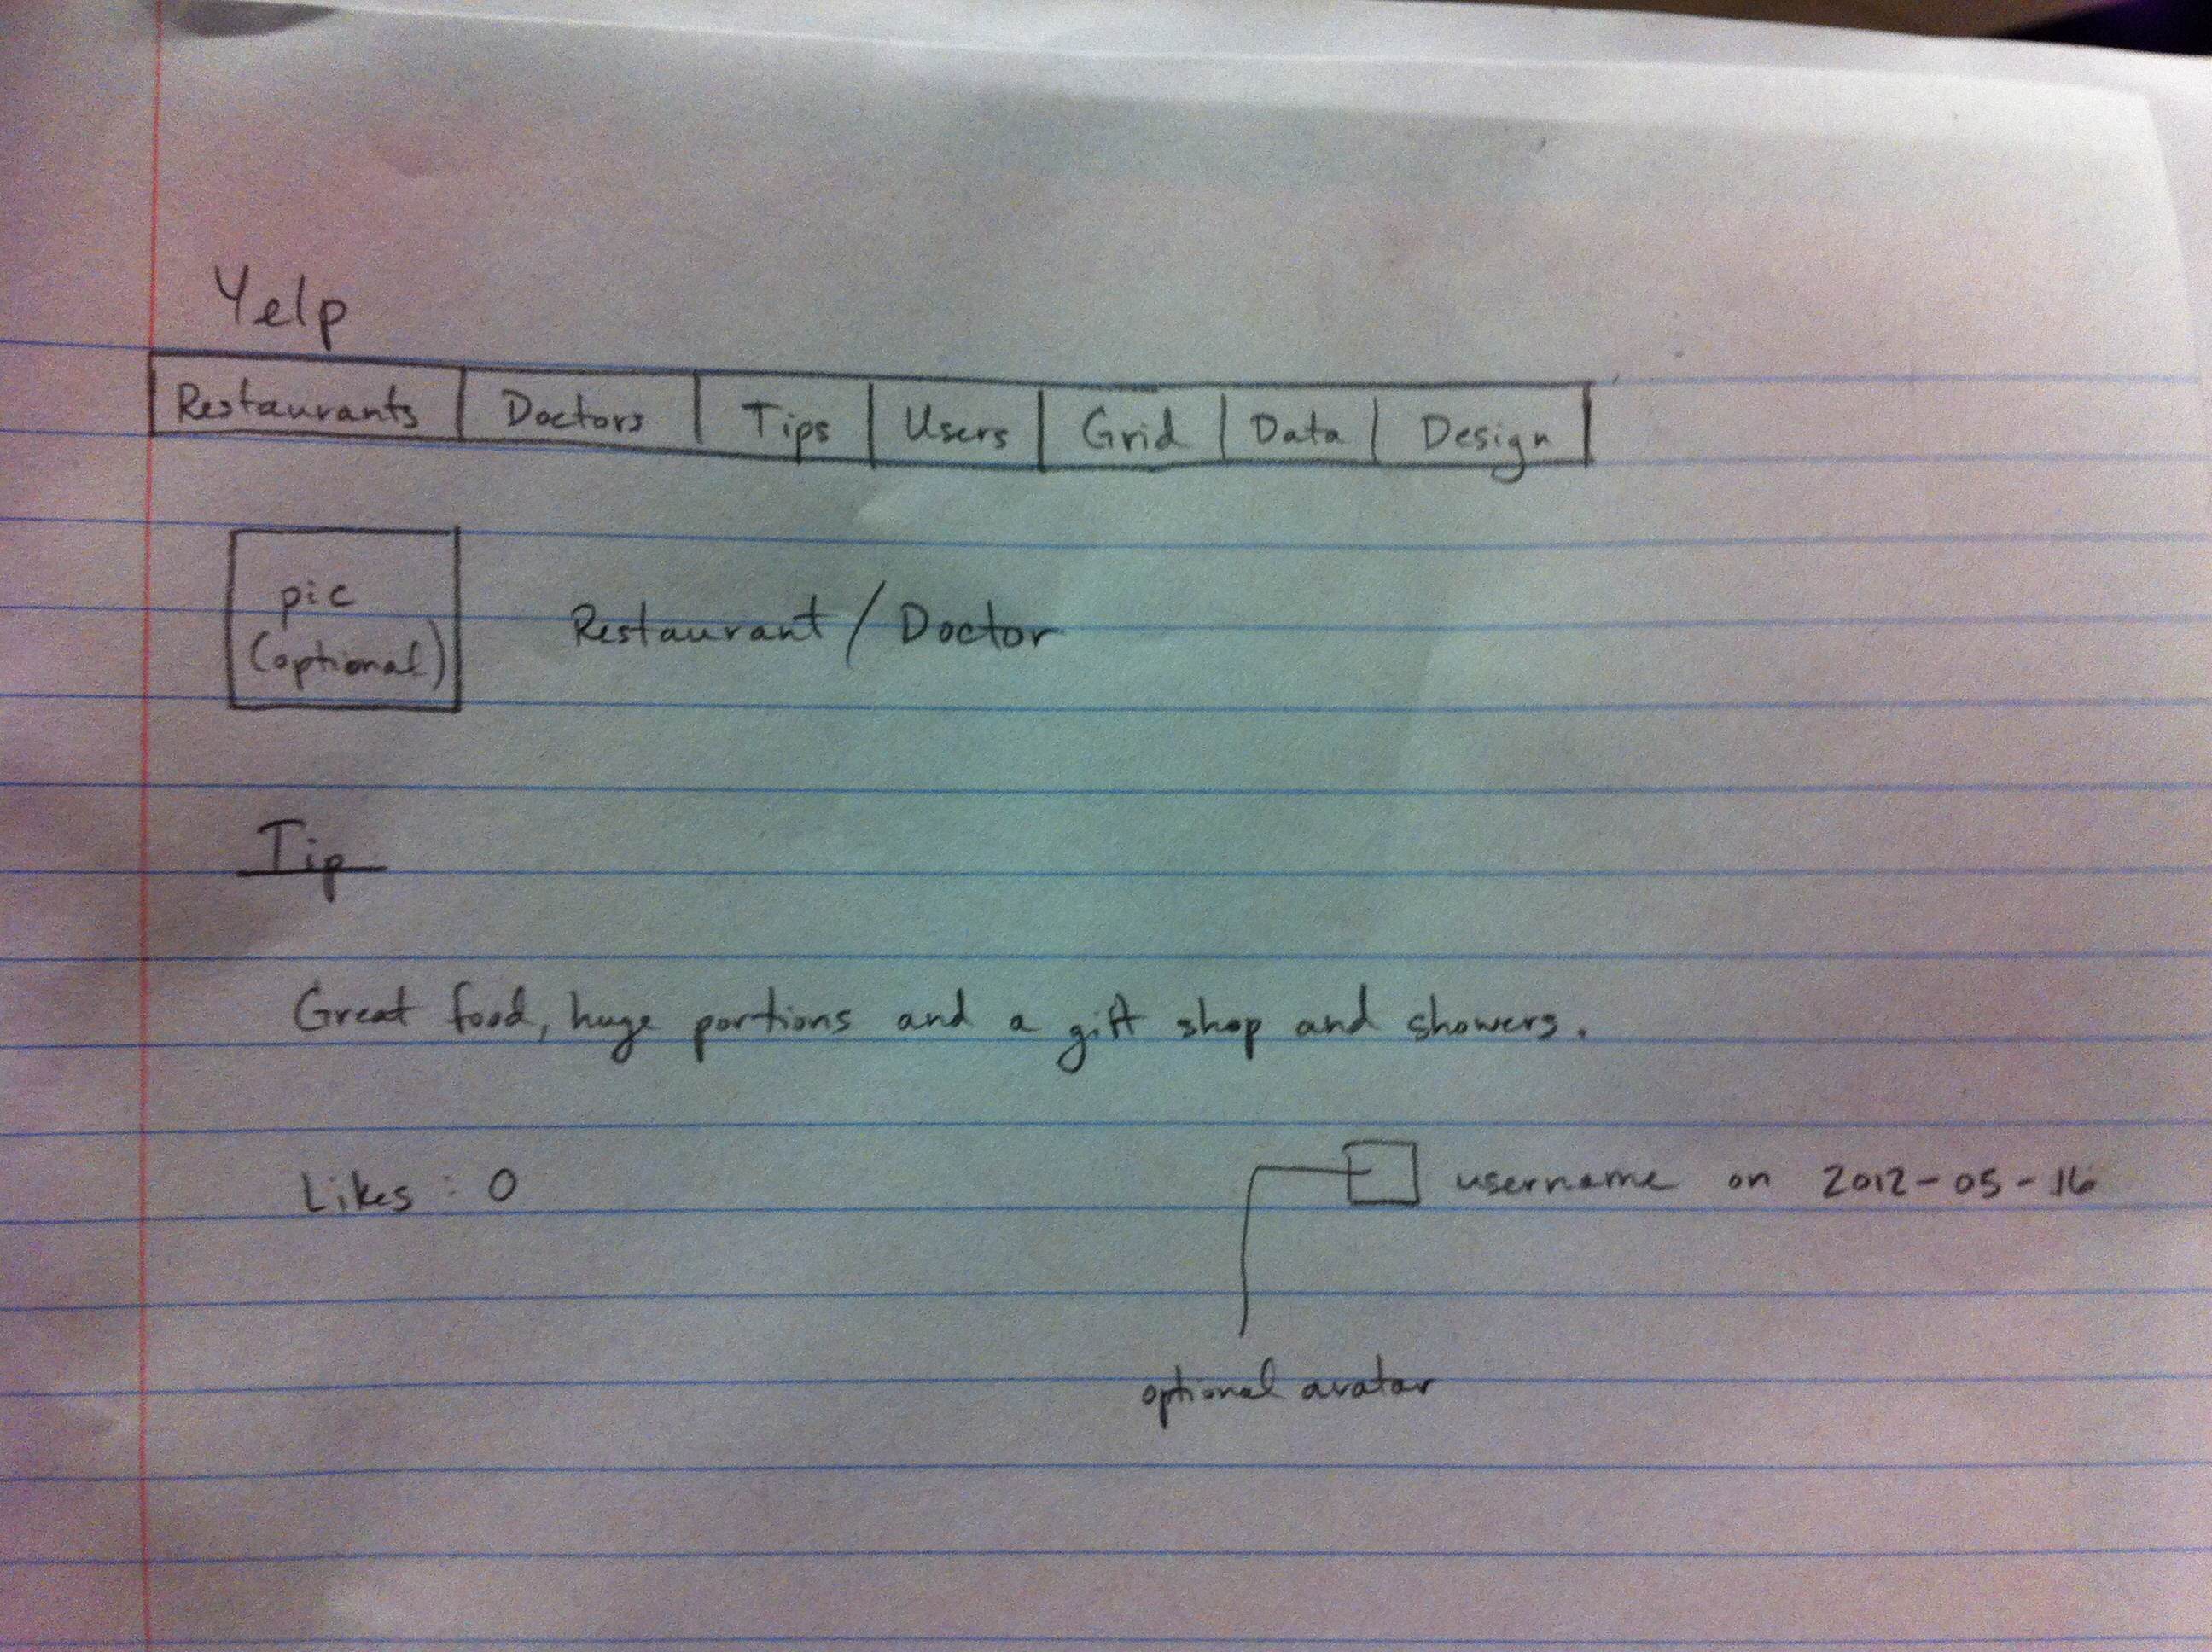 Yelp
Restaurants Doctors Tips Users Grid Data Design
pic
(optional)
Restaurant / Doctor
Tip
Great food, huge portions and a gift shop and showers.
Likes : 0
username on 2012-05-16
optional avatar